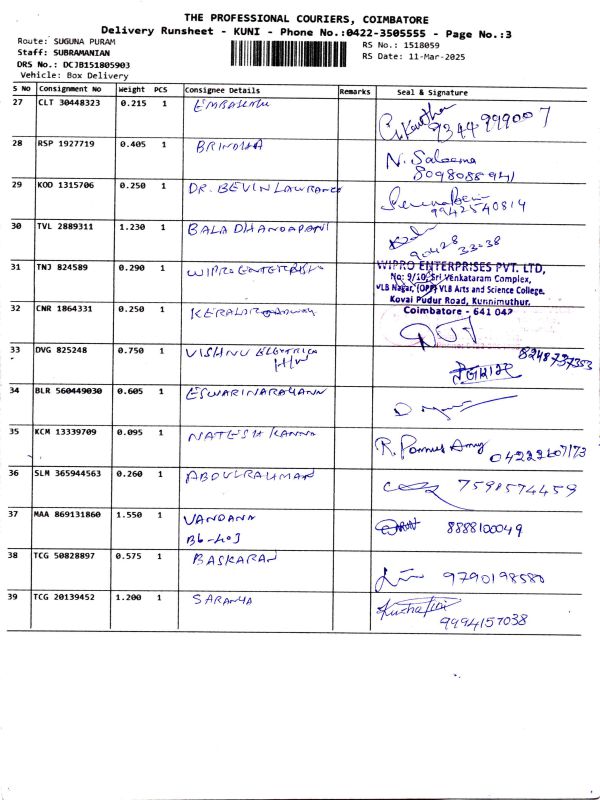 THE PROFESSIONAL COURIERS, COIMBATORE
Delivery Runsheet - KUNI - Phone No.:0422-3505555 - Page No.:3
Route: SUGUNA PURAM
RS No.: 1518059
Staff: SUBRAMANIAN
RS Date: 11-Mar-2025
DRS No.: DCJB151805903
Vehicle: Box Delivery
S No Consignment No Weight PCS Consignee Details Remarks Seal & Signature
27 CLT 30448323 0.215 1
9344999007
28 RSP 1927719 0.405 1 BRINDHA N. Saleema
8098088941
29 KOO 1315706 0.250 1 DR. BEVIN LAWRANCE
9942540814
30 TVL 2889311 1.230 1 BALA DHANDAPANI
90428 33038
31 TNJ 824589 0.290 1 WIPRO ENTERPRISES
WIPRO ENTERPRISES PVT. LTD,
No: 9/10, Sri Venkataram Complex,
VLB Nagar, (OPP) VLB Arts and Science College,
Kovai Pudur Road, Kunnimuthur.
Coimbatore - 641 042
32 CNR 1864331 0.250 1
33 DVG 825248 0.750 1 VISHNU ELECTRICA 8248737353
H/W
34 BLR 560449030 0.605 1 ESWARINARAYANN
35 KCM 13339709 0.095 1 NATESH KANNA
04222607173
36 SLM 365944563 0.260 1 ABDULRAHMAN 7598574459
37 MAA 869131860 1.550 1 VANDANA
B6-403 8888100049
38 TCG 50828897 0.575 1 BASKARAN
9790198580
39 TCG 20139452 1.200 1 SARANYA
9994157038